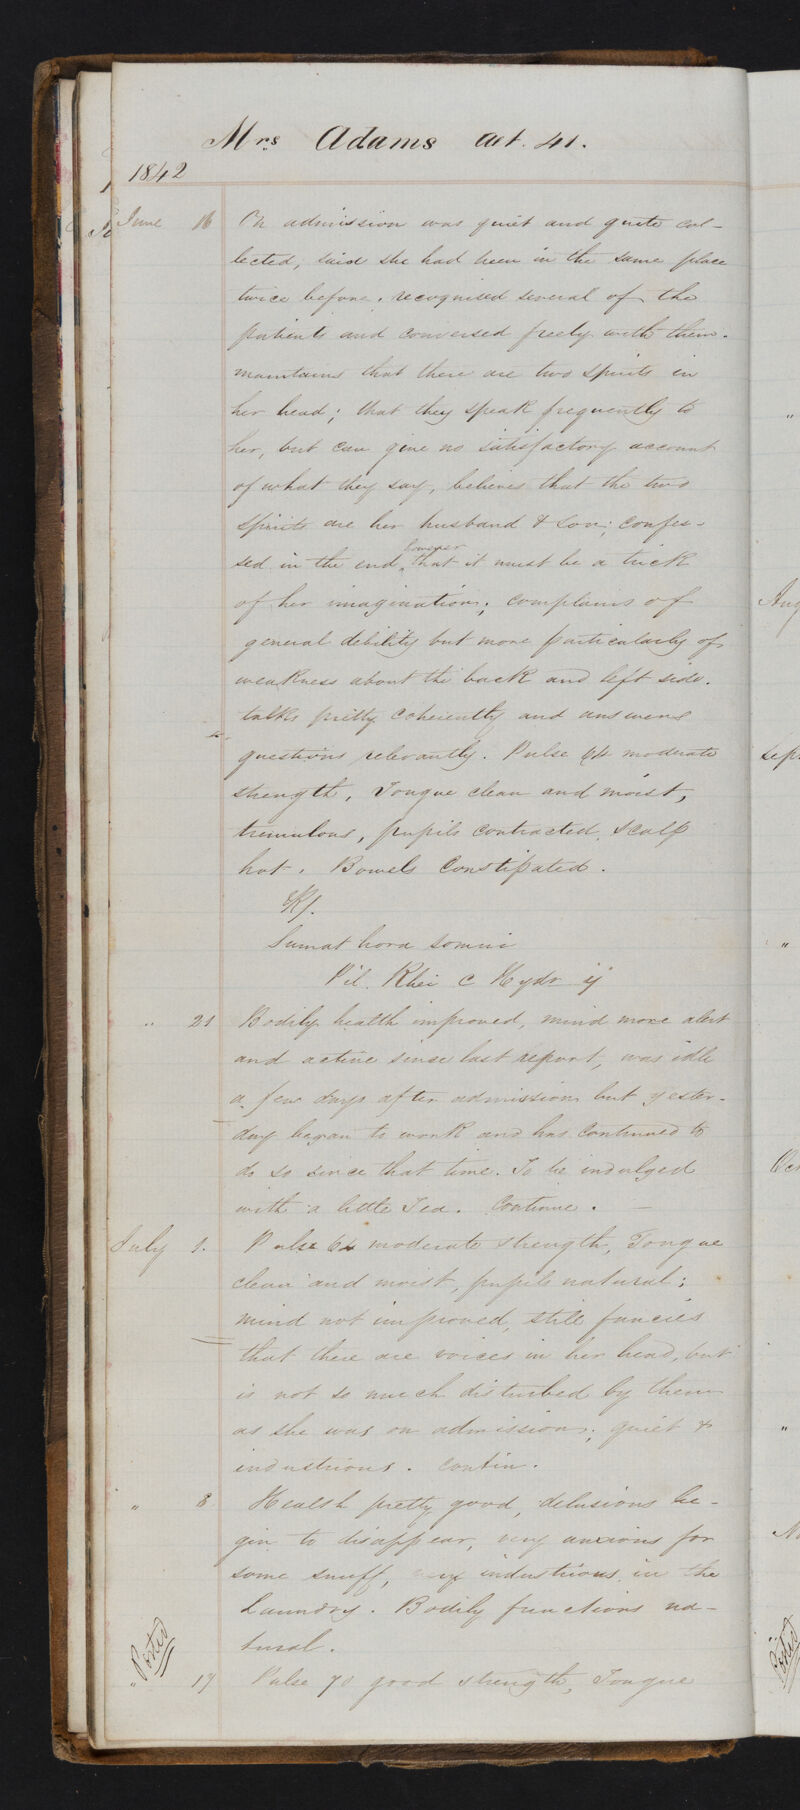 Mrs Adams aet. 41.
1842
June 16 On admission was quiet and quite col-
lected, said she had been in the same place
twice before. recognised several of the
patients and conversed freely with them.
maintains that there are two spirits in
her head; that they speak frequently to
her, but can give no satisfactory account
of what they say, believes that the two
spirits are her husband & son; confes-
sed in the end however that it must be a trick
of her imagination; complains of
general debility but more particularly of
weakness about the back and left side.
talks pretty coherently and answers
questions relevantly. Pulse 64 moderate
strength, Tongue clean and moist,
tremulous, pupils contracted, scalp
hot. Bowels constipated.
Rj.
Sumat hora somni
Pil. Rhei c Hydr ij
" 21 Bodily health improved, mind more alert
and active since last report, was idle
a few days after admission but yester-
day began to work and has continued to
do so since that time. To be indulged
with a little Tea. Continue. —
July 1. Pulse 64 moderate strength, Tongue
clean and moist, pupils natural;
mind not improved, still fancies
that there are voices in her head, but
is not so much disturbed by them
as she was on admission; quiet &
industrious. Contin.
" 8 Health pretty good, delusions be-
gin to disappear, very anxious for
some snuff, very industrious in the
Laundry. Bodily functions na-
tural.
Posted
" 17 Pulse 70 good strength, Tongue
Aug
Sep
"
Oct
"
No
Posted